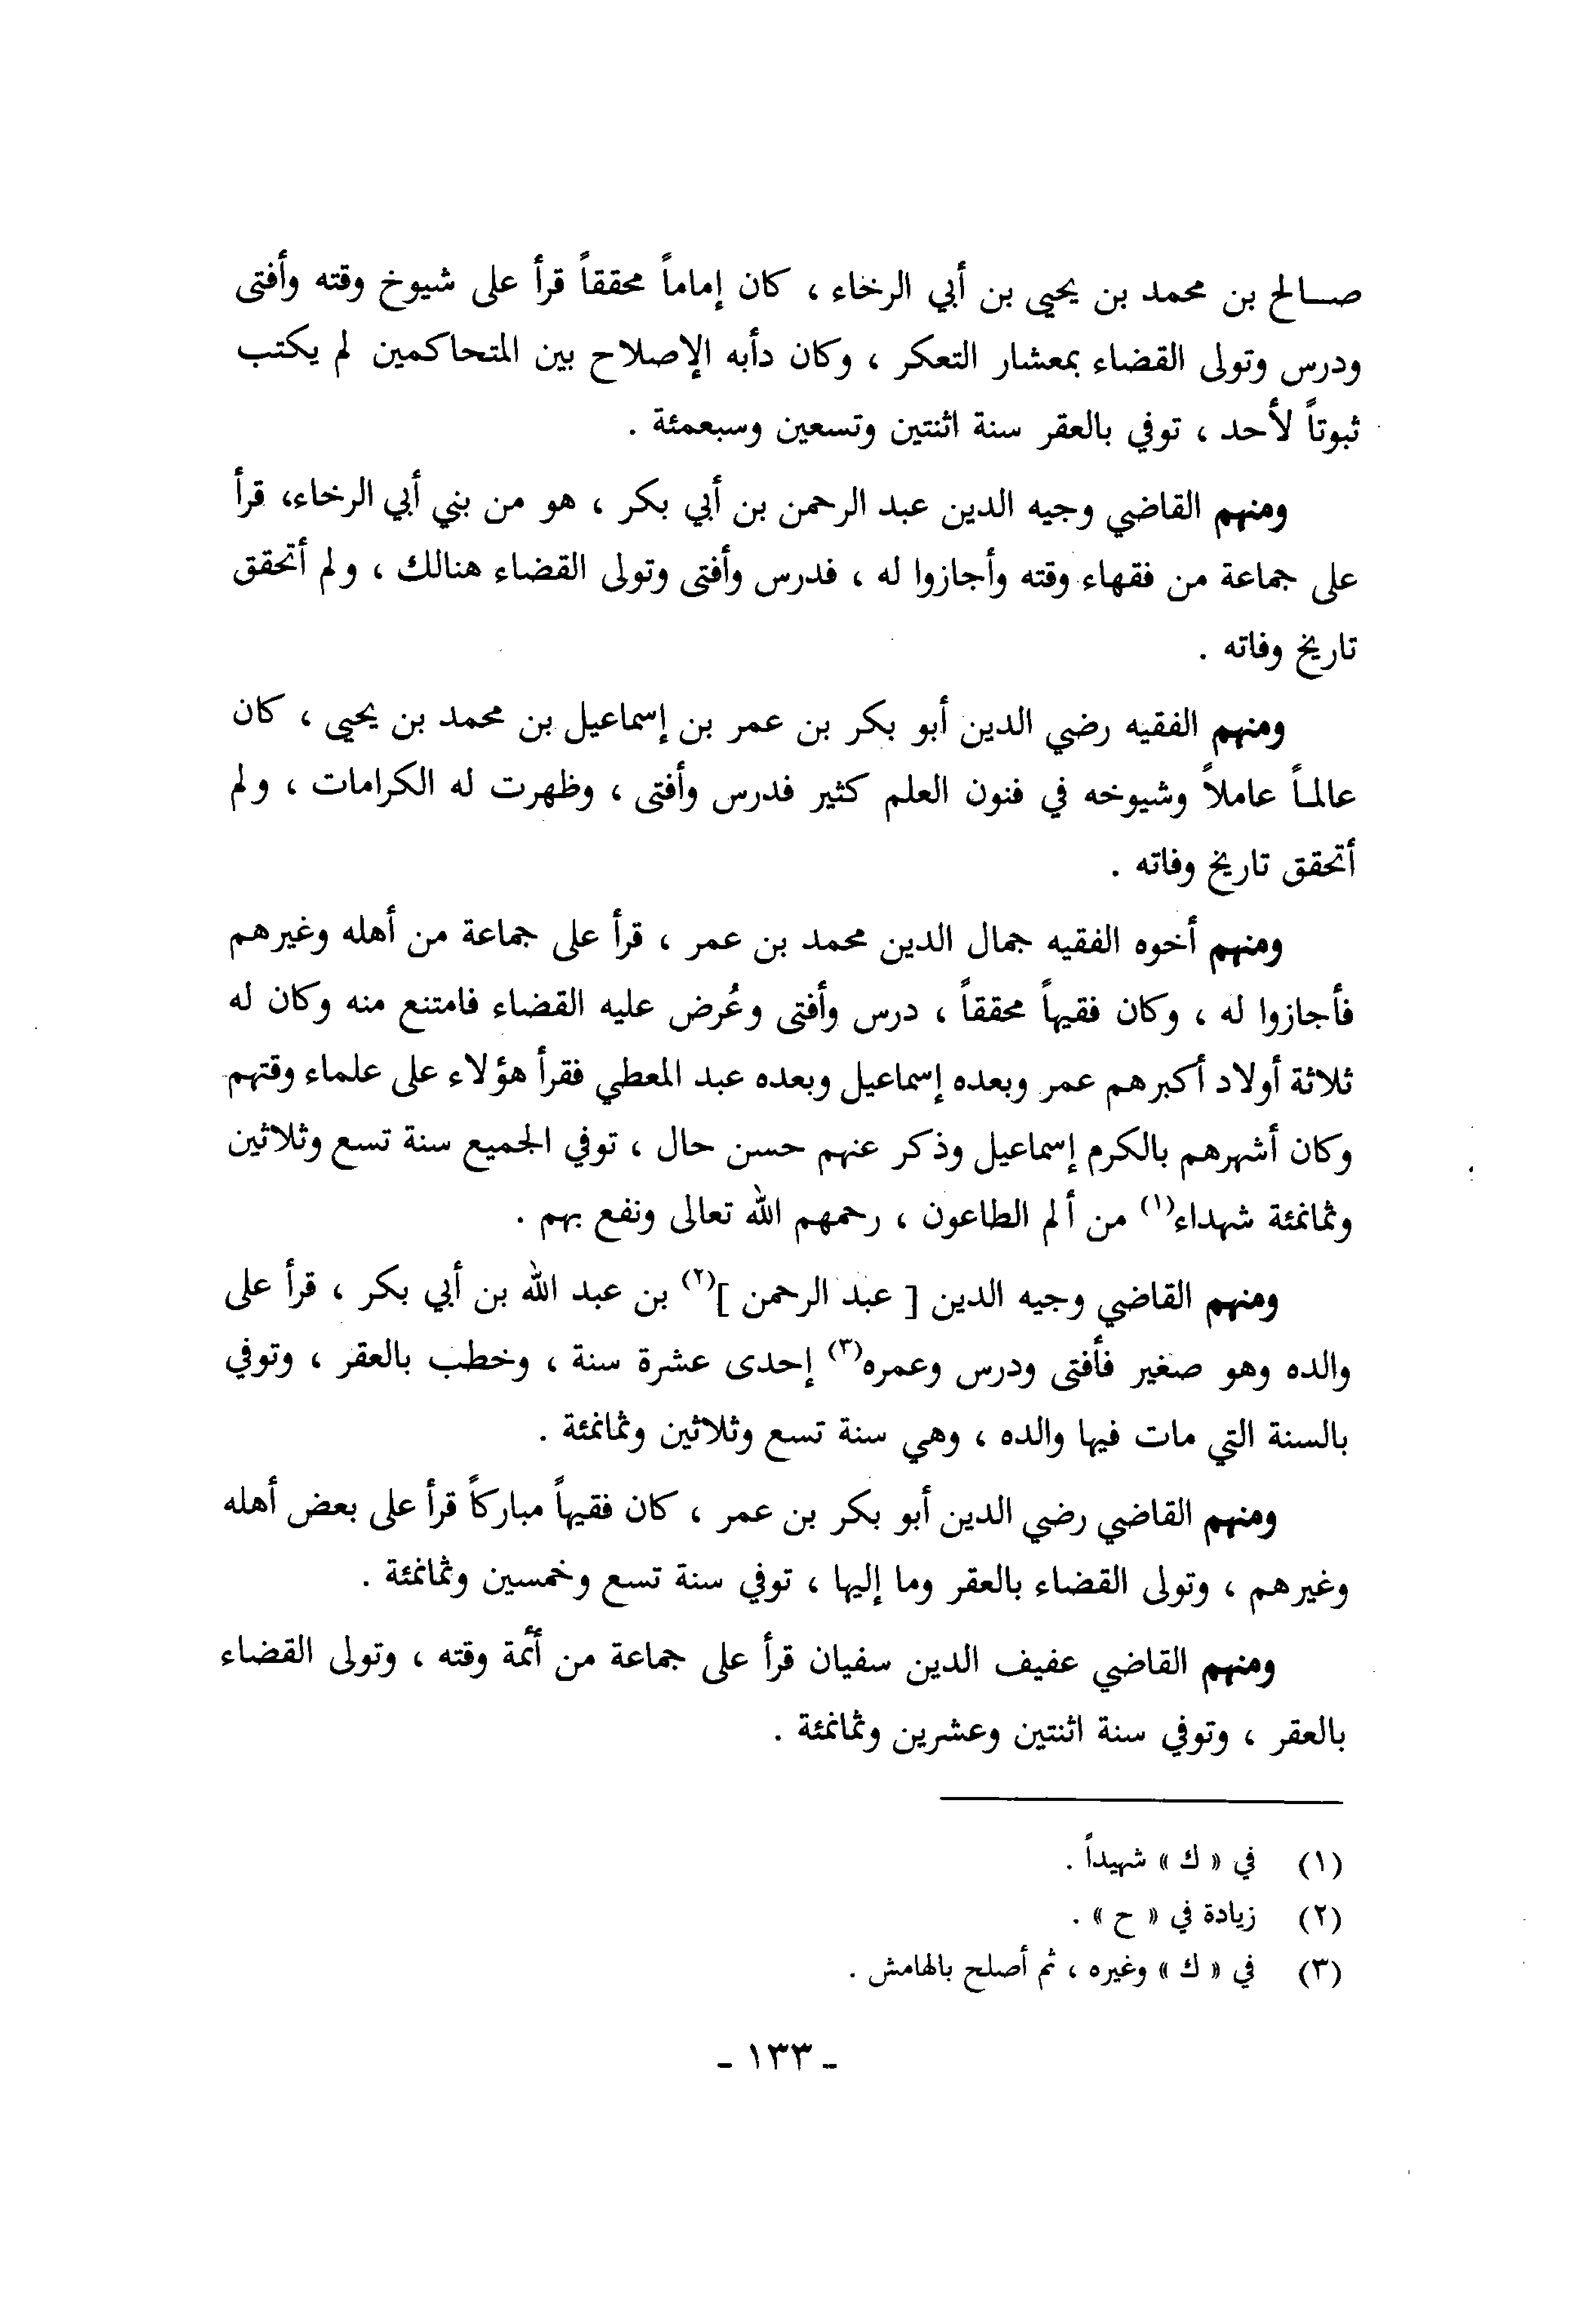 صـالح بن محمد بن يحيى بن أبي الرخاء ، كان إماماً محققاً قرأ على شيوخ وقته وأفتى
ودرس وتولى القضاء بمعشار التعكر ، وكان دأبه الإصلاح بين المتحاكمين لم يكتب
ثبوتاً لأحد ، توفي بالعقر سنة اثنتين وتسعين وسبعمئة .
ومنهم القاضي وجيه الدين عبد الرحمن بن أبي بكر ، هو من بني أبي الرخاء، قرأ
على جماعة من فقهاء وقته وأجازوا له ، فدرس وأفتى وتولى القضاء هنالك ، ولم أتحقق
تاريخ وفاته .
ومنهم الفقيه رضي الدين أبو بكر بن عمر بن إسماعيل بن محمد بن يحيى ، كان
عالماً عاملاً وشيوخه في فنون العلم كثير فدرس وأفتى ، وظهرت له الكرامات ، ولم
أتحقق تاريخ وفاته .
ومنهم أخوه الفقيه جمال الدين محمد بن عمر ، قرأ على جماعة من أهله وغيرهم
فأجازوا له ، وكان فقيهاً محققاً ، درس وأفتى وعُرض عليه القضاء فامتنع منه وكان له
ثلاثة أولاد أكبرهم عمر وبعده إسماعيل وبعده عبد المعطي فقرأ هؤلاء على علماء وقتهم
وكان أشهرهم بالكرم إسماعيل وذكر عنهم حسن حال ، توفي الجميع سنة تسع وثلاثين
وثمانمئة شهداء(١) من ألم الطاعون ، رحمهم الله تعالى ونفع بهم .
ومنهم القاضي وجيه الدين [ عبد الرحمن ](٢) بن عبد الله بن أبي بكر ، قرأ على
والده وهو صغير فأفتى ودرس وعمره(٣) إحدى عشرة سنة ، وخطب بالعقر ، وتوفي
بالسنة التي مات فيها والده ، وهي سنة تسع وثلاثين وثمانمئة .
ومنهم القاضي رضي الدين أبو بكر بن عمر ، كان فقيهاً مباركاً قرأ على بعض أهله
وغيرهم ، وتولى القضاء بالعقر وما إليها ، توفي سنة تسع وخمسين وثمانمئة .
ومنهم القاضي عفيف الدين سفيان قرأ على جماعة من أئمة وقته ، وتولى القضاء
بالعقر ، وتوفي سنة اثنتين وعشرين وثمانمئة .
(١) في « ك » شهيداً .
(٢) زيادة في « ح » .
(٣) في « ك » وغيره ، ثم أصلح بالهامش .
- ١٣٣ -